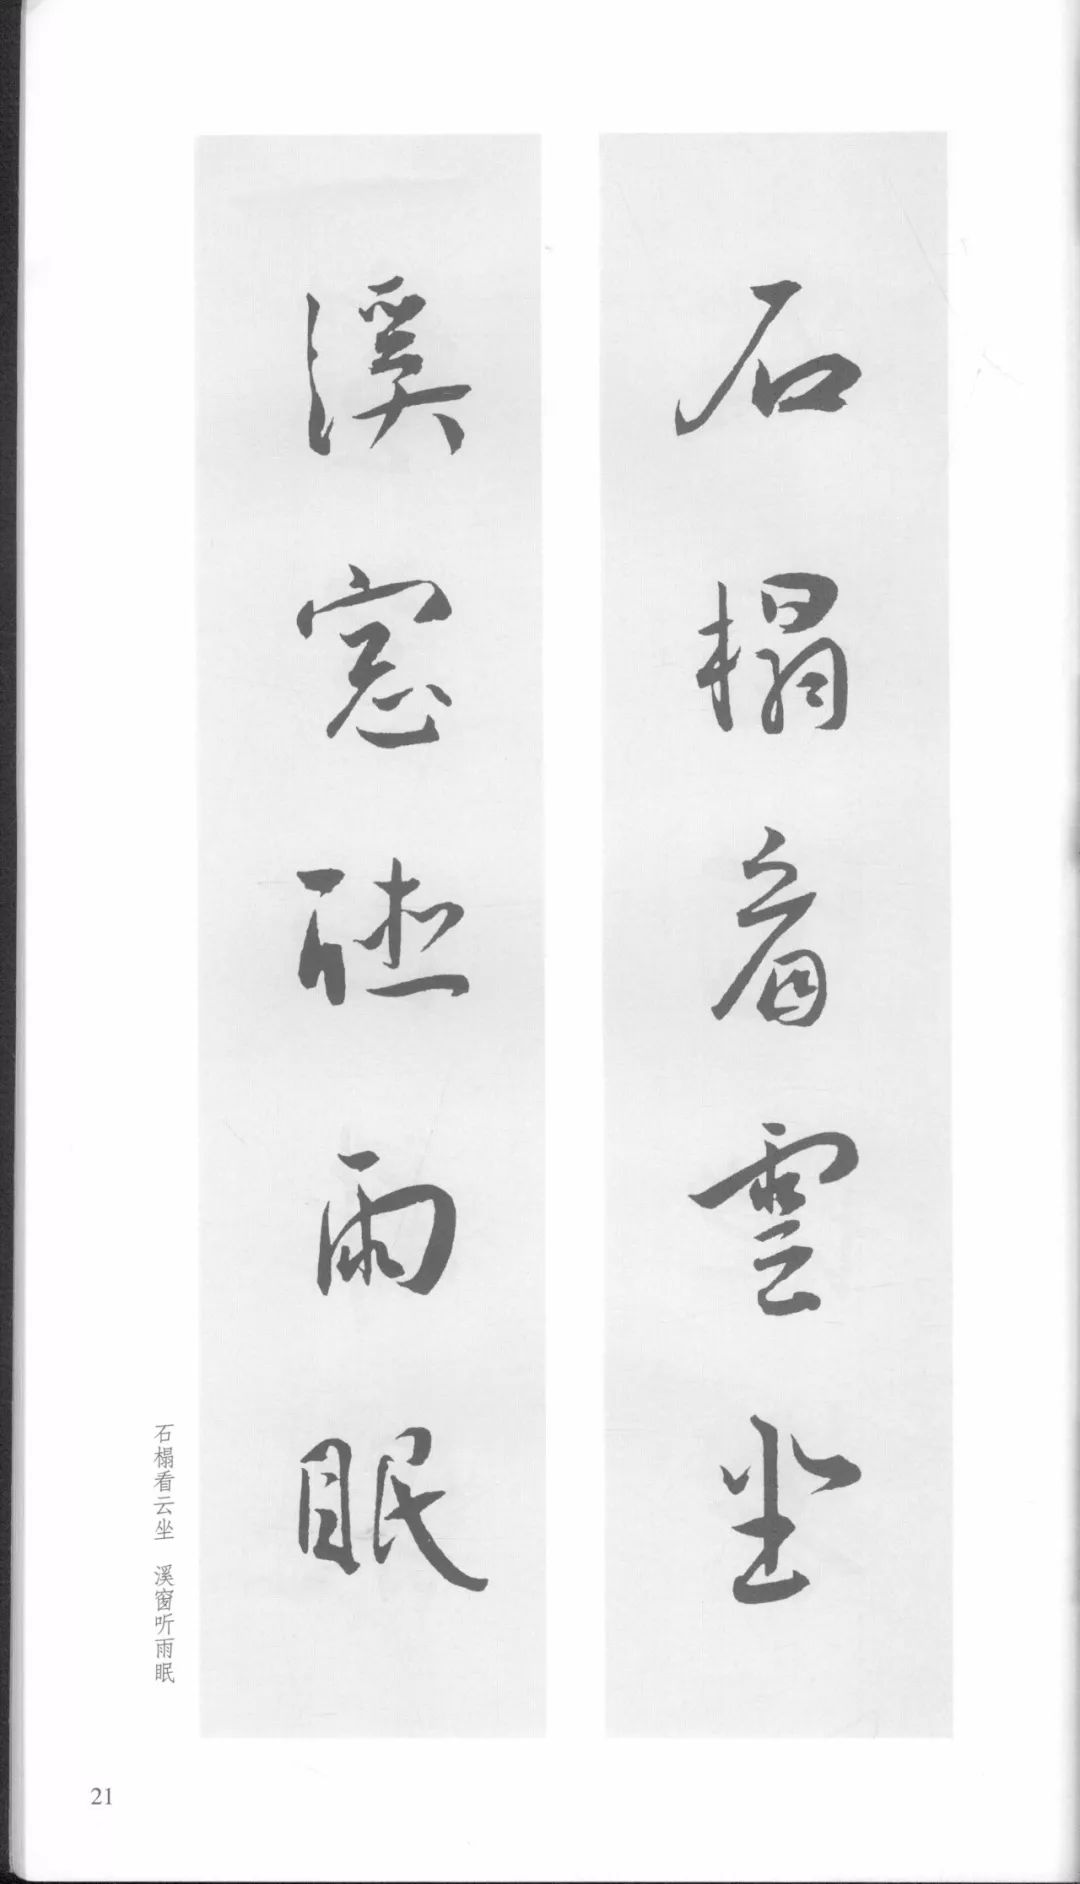 石榻看雲坐
溪窓聽雨眠
石榻看云坐 溪窗听雨眠
21